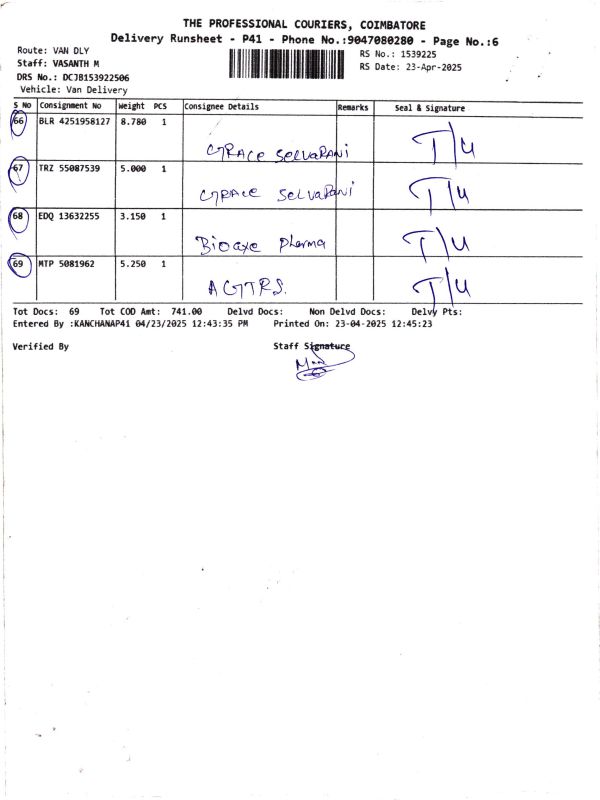 THE PROFESSIONAL COURIERS, COIMBATORE
Delivery Runsheet - P41 - Phone No.:9047080280 - Page No.:6
Route: VAN DLY
RS No.: 1539225
Staff: VASANTH M
RS Date: 23-Apr-2025
DRS No.: DCJB153922506
Vehicle: Van Delivery
S No Consignment No Weight PCS Consignee Details Remarks Seal & Signature
66 BLR 4251958127 8.780 1 GRACE SELVARANI T/U
67 TRZ 55087539 5.000 1 GRACE SELVARANI T/U
68 EDQ 13632255 3.150 1 Bioaxe pharma T/U
69 MTP 5081962 5.250 1 AGTRS. T/U
Tot Docs: 69 Tot COD Amt: 741.00 Delvd Docs: Non Delvd Docs: Delvy Pts:
Entered By :KANCHANAP41 04/23/2025 12:43:35 PM Printed On: 23-04-2025 12:45:23
Verified By Staff Signature